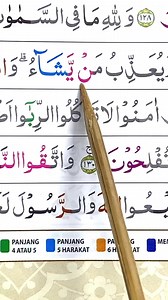 ١٢٨ وَلِلّٰهِ مَا فِى السَّمٰوٰ
يُعَذِّبُ مَنْ يَّشَاۤءُ ۗ وَا
اٰمَنُوْا لَا تَأْكُلُوا الرِّبٰوٓا
تُفْلِحُوْنَ ١٣٠ وَاتَّقُوا النَّ
اللّٰهَ وَالرَّسُوْلَ لَعَ
PANJANG 4 ATAU 5
PANJANG 5 HARAKAT
PANJANG 6 HARAKAT